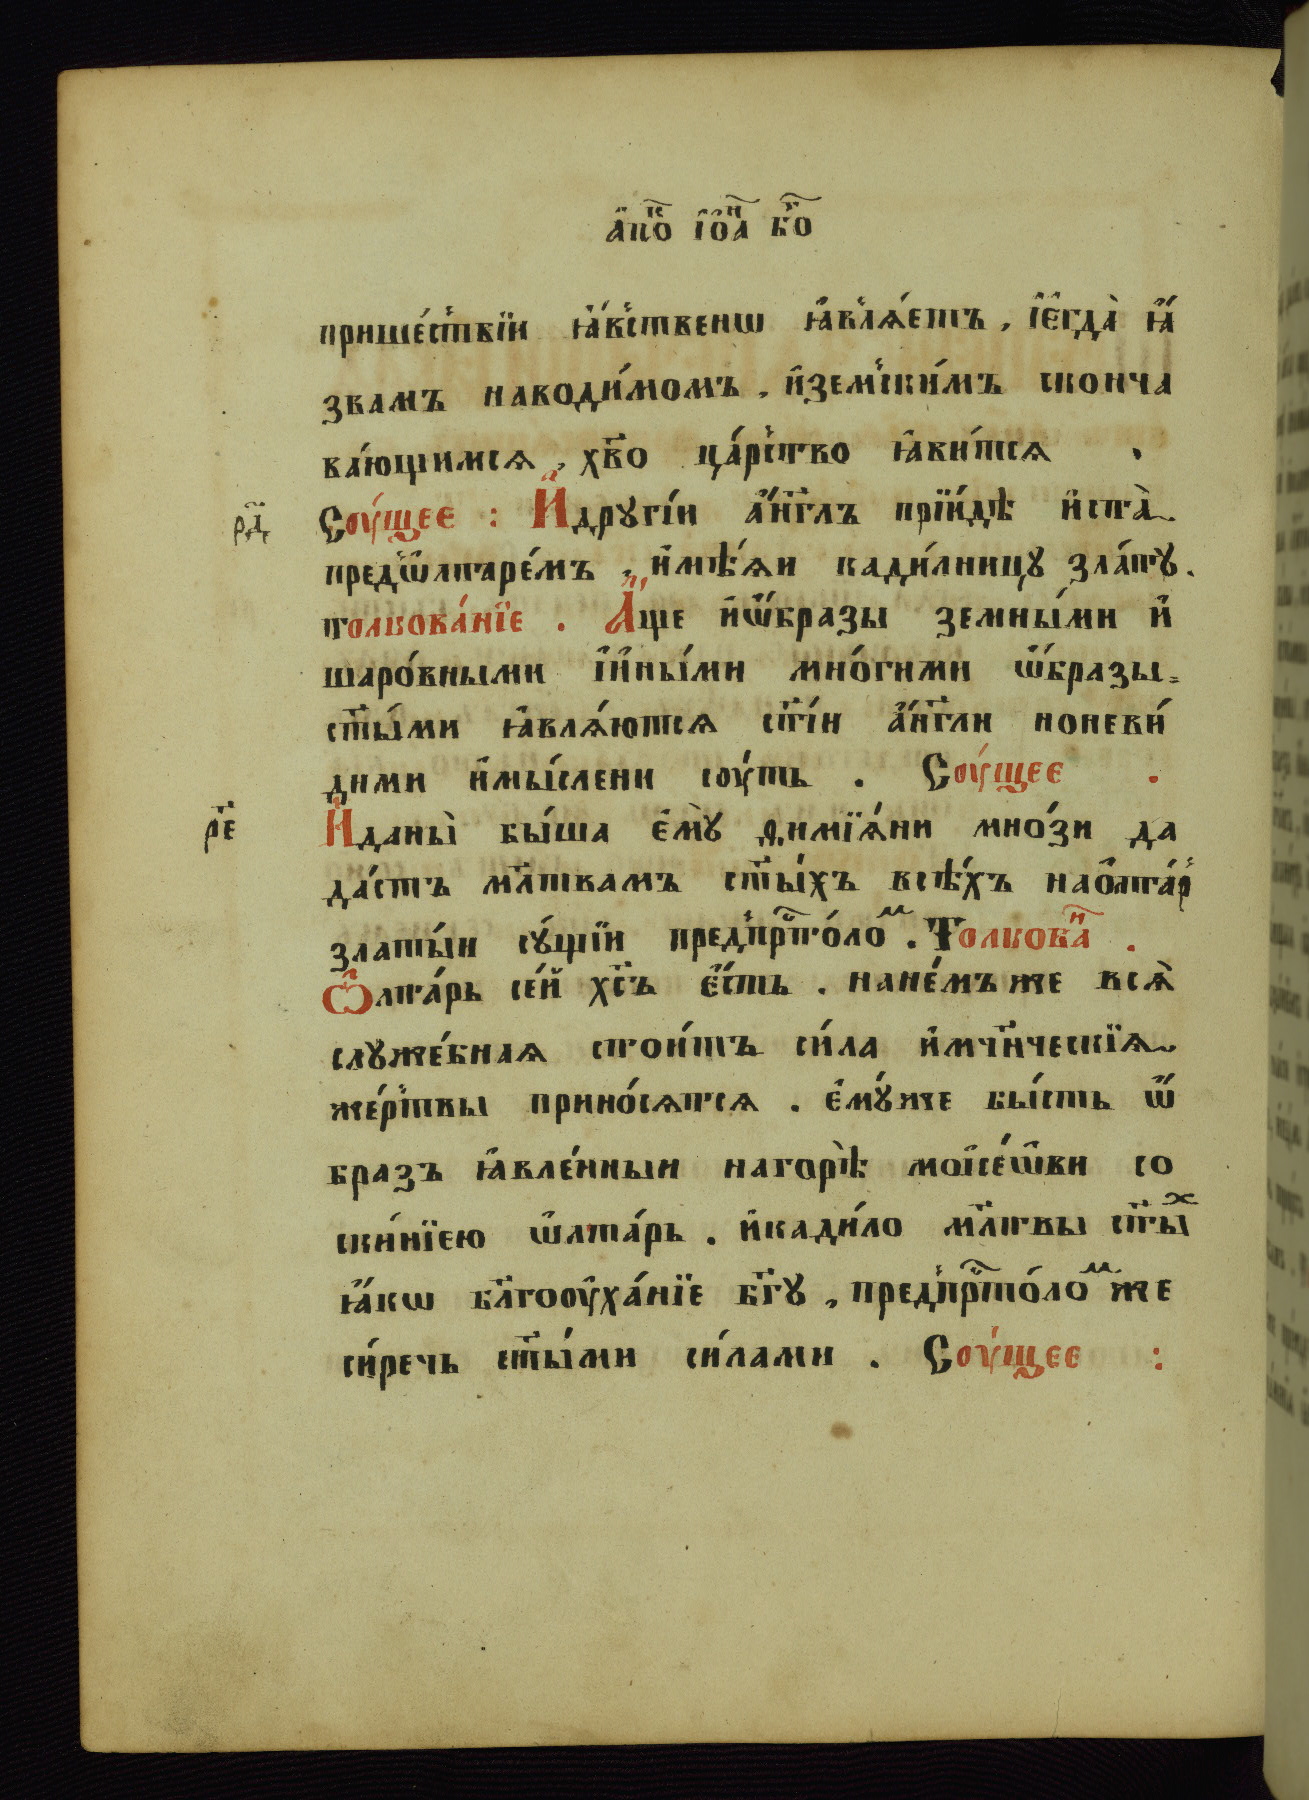 а҆пⷭ҇о і҆ѡ҆ⷩ҇а бг҃о
прише́ствїи ꙗ҆́вственѡ ꙗ҆влѧ́етъ, і҆є҆гда̀ ꙗ҆́
звамъ наводи́момъ, и҆земски́мъ сконча
ва́ющимсѧ, хв҃о ца́рство ꙗ҆ви́тсѧ .
рд҃і Соу́щее : И҆дрꙋгі́и а҆́нг҃лъ прїи́дѣ и҆ста̀
предѡ҆лтаре́мъ, и҆мѣ́ѧи кади́лницꙋ зла́тꙋ.
толкова́нїе . А҆́ще и҆ѡ҆́бразы земны́ми и҆
шаро́вными і҆и҆ны́ми мно́гими ѡ҆́бразы
ст҃ы́ми ꙗ҆влѧ́ютсѧ ст҃і́и а҆́нг҃ли ноневи́
дими и҆мы́слени соу́ть . Соу́щее .
рє҃ И҆даны̀ бы́ша є҆мꙋ̀ ѳимїѧ́ни мно́зи да
да́стъ мл҃твамъ ст҃ы́хъ всѣ́хъ наѻ҆лта́р
златы́и сꙋ́щїи предпрⷭ҇то́лоⷨ . Толкова́ⷩ .
Ѡ҆лта́рь се́й хс҃ъ є҆́сть . нане́мъже всѧ̀
слꙋже́бнаѧ стои́тъ си́ла и҆мч҃нческїѧ
же́ртвы прино́сѧтсѧ . є҆мꙋ́же бы́сть ѡ҆́
бразъ ꙗ҆вле́нныи нагорѣ̀ мѻисе́ѡви со
ски́нїею ѡ҆лта́рь . и҆кади́ло мл҃твы ст҃ыⷯ
ꙗ҆́кѡ бл҃гооуха́нїе бг҃ꙋ, предпрⷭ҇то́лоⷨже
си́речь ст҃ы́ми си́лами . Соу́щее :